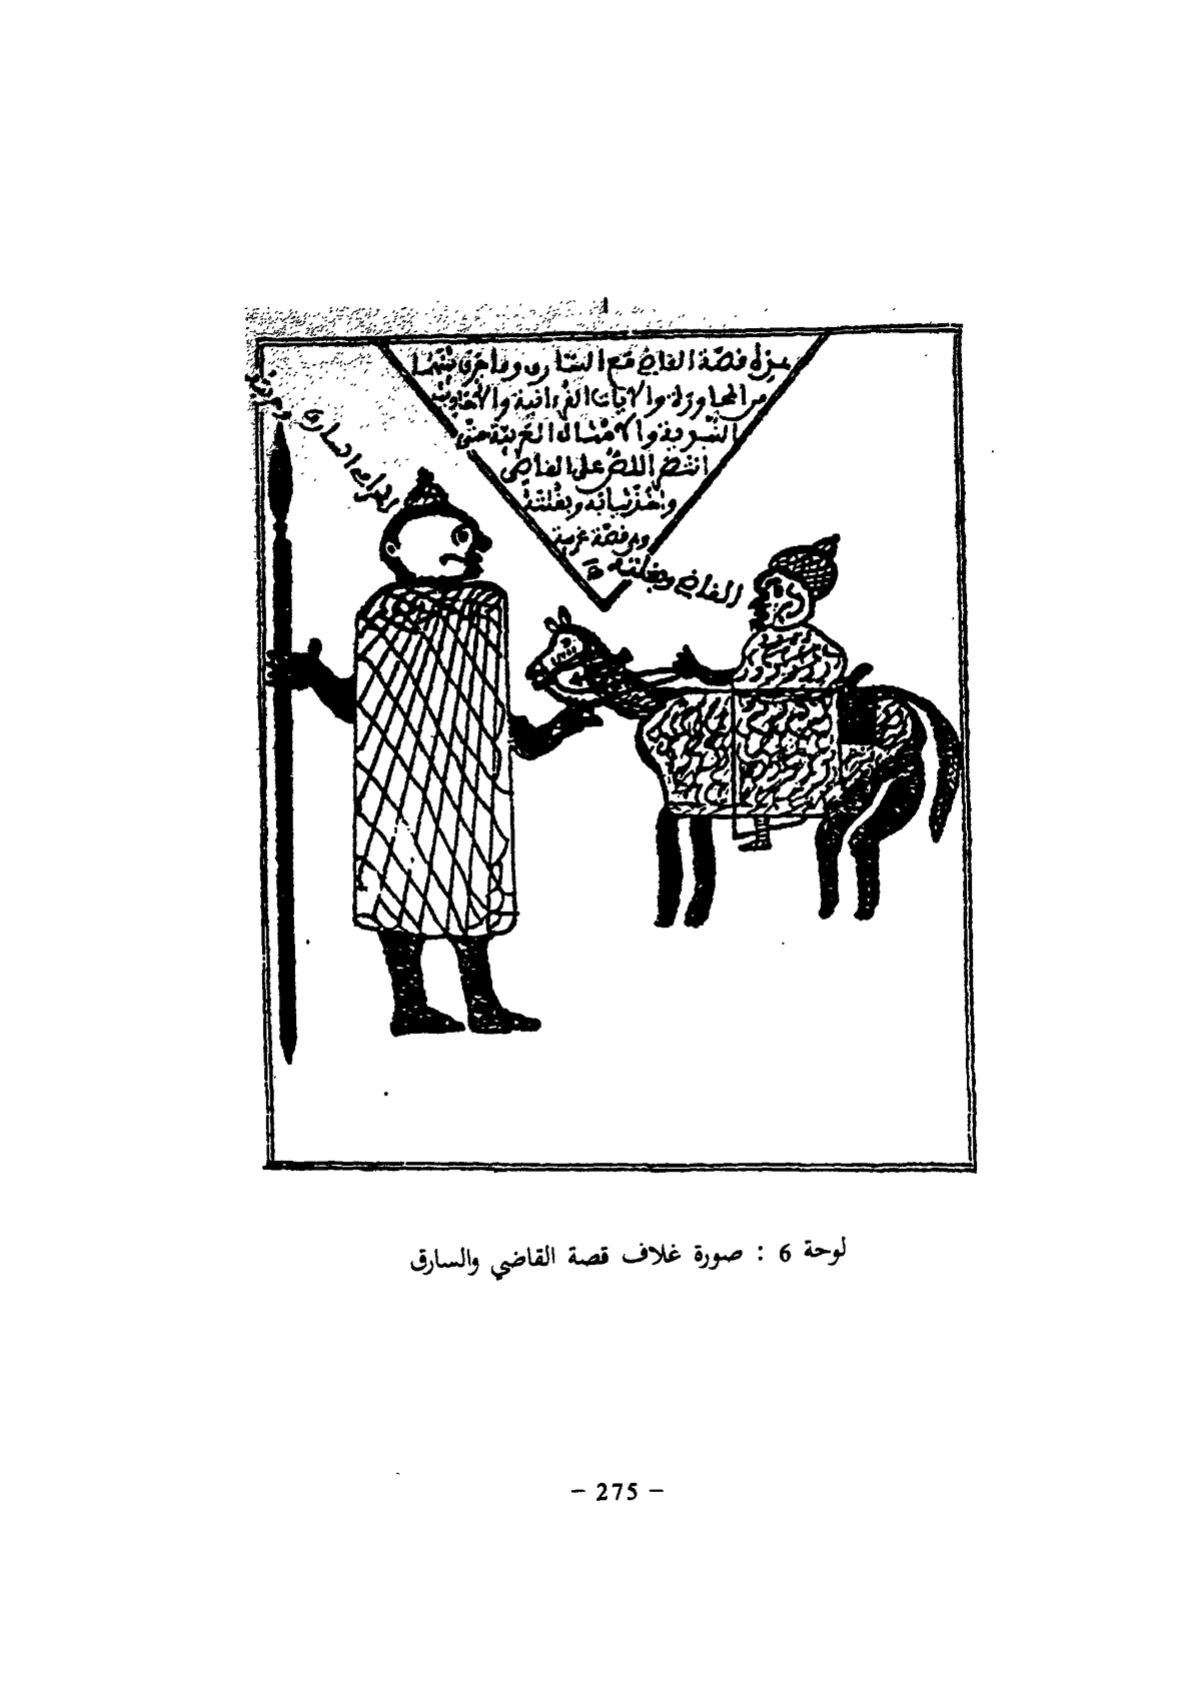 هذه قصّة القاضي مع السّارق وما جرى بينهما
من المحاورة والآيات القرءانية والأحاديث
النّبوية والأمثال العربيّة حتّى
انتصر اللص على القاضي
وأخذ ثيابه وبغلته
وهي قصّة غريبة
السارق وحربته
القاضي وبغلته
لوحة 6 : صورة غلاف قصة القاضي والسارق
- 275 -